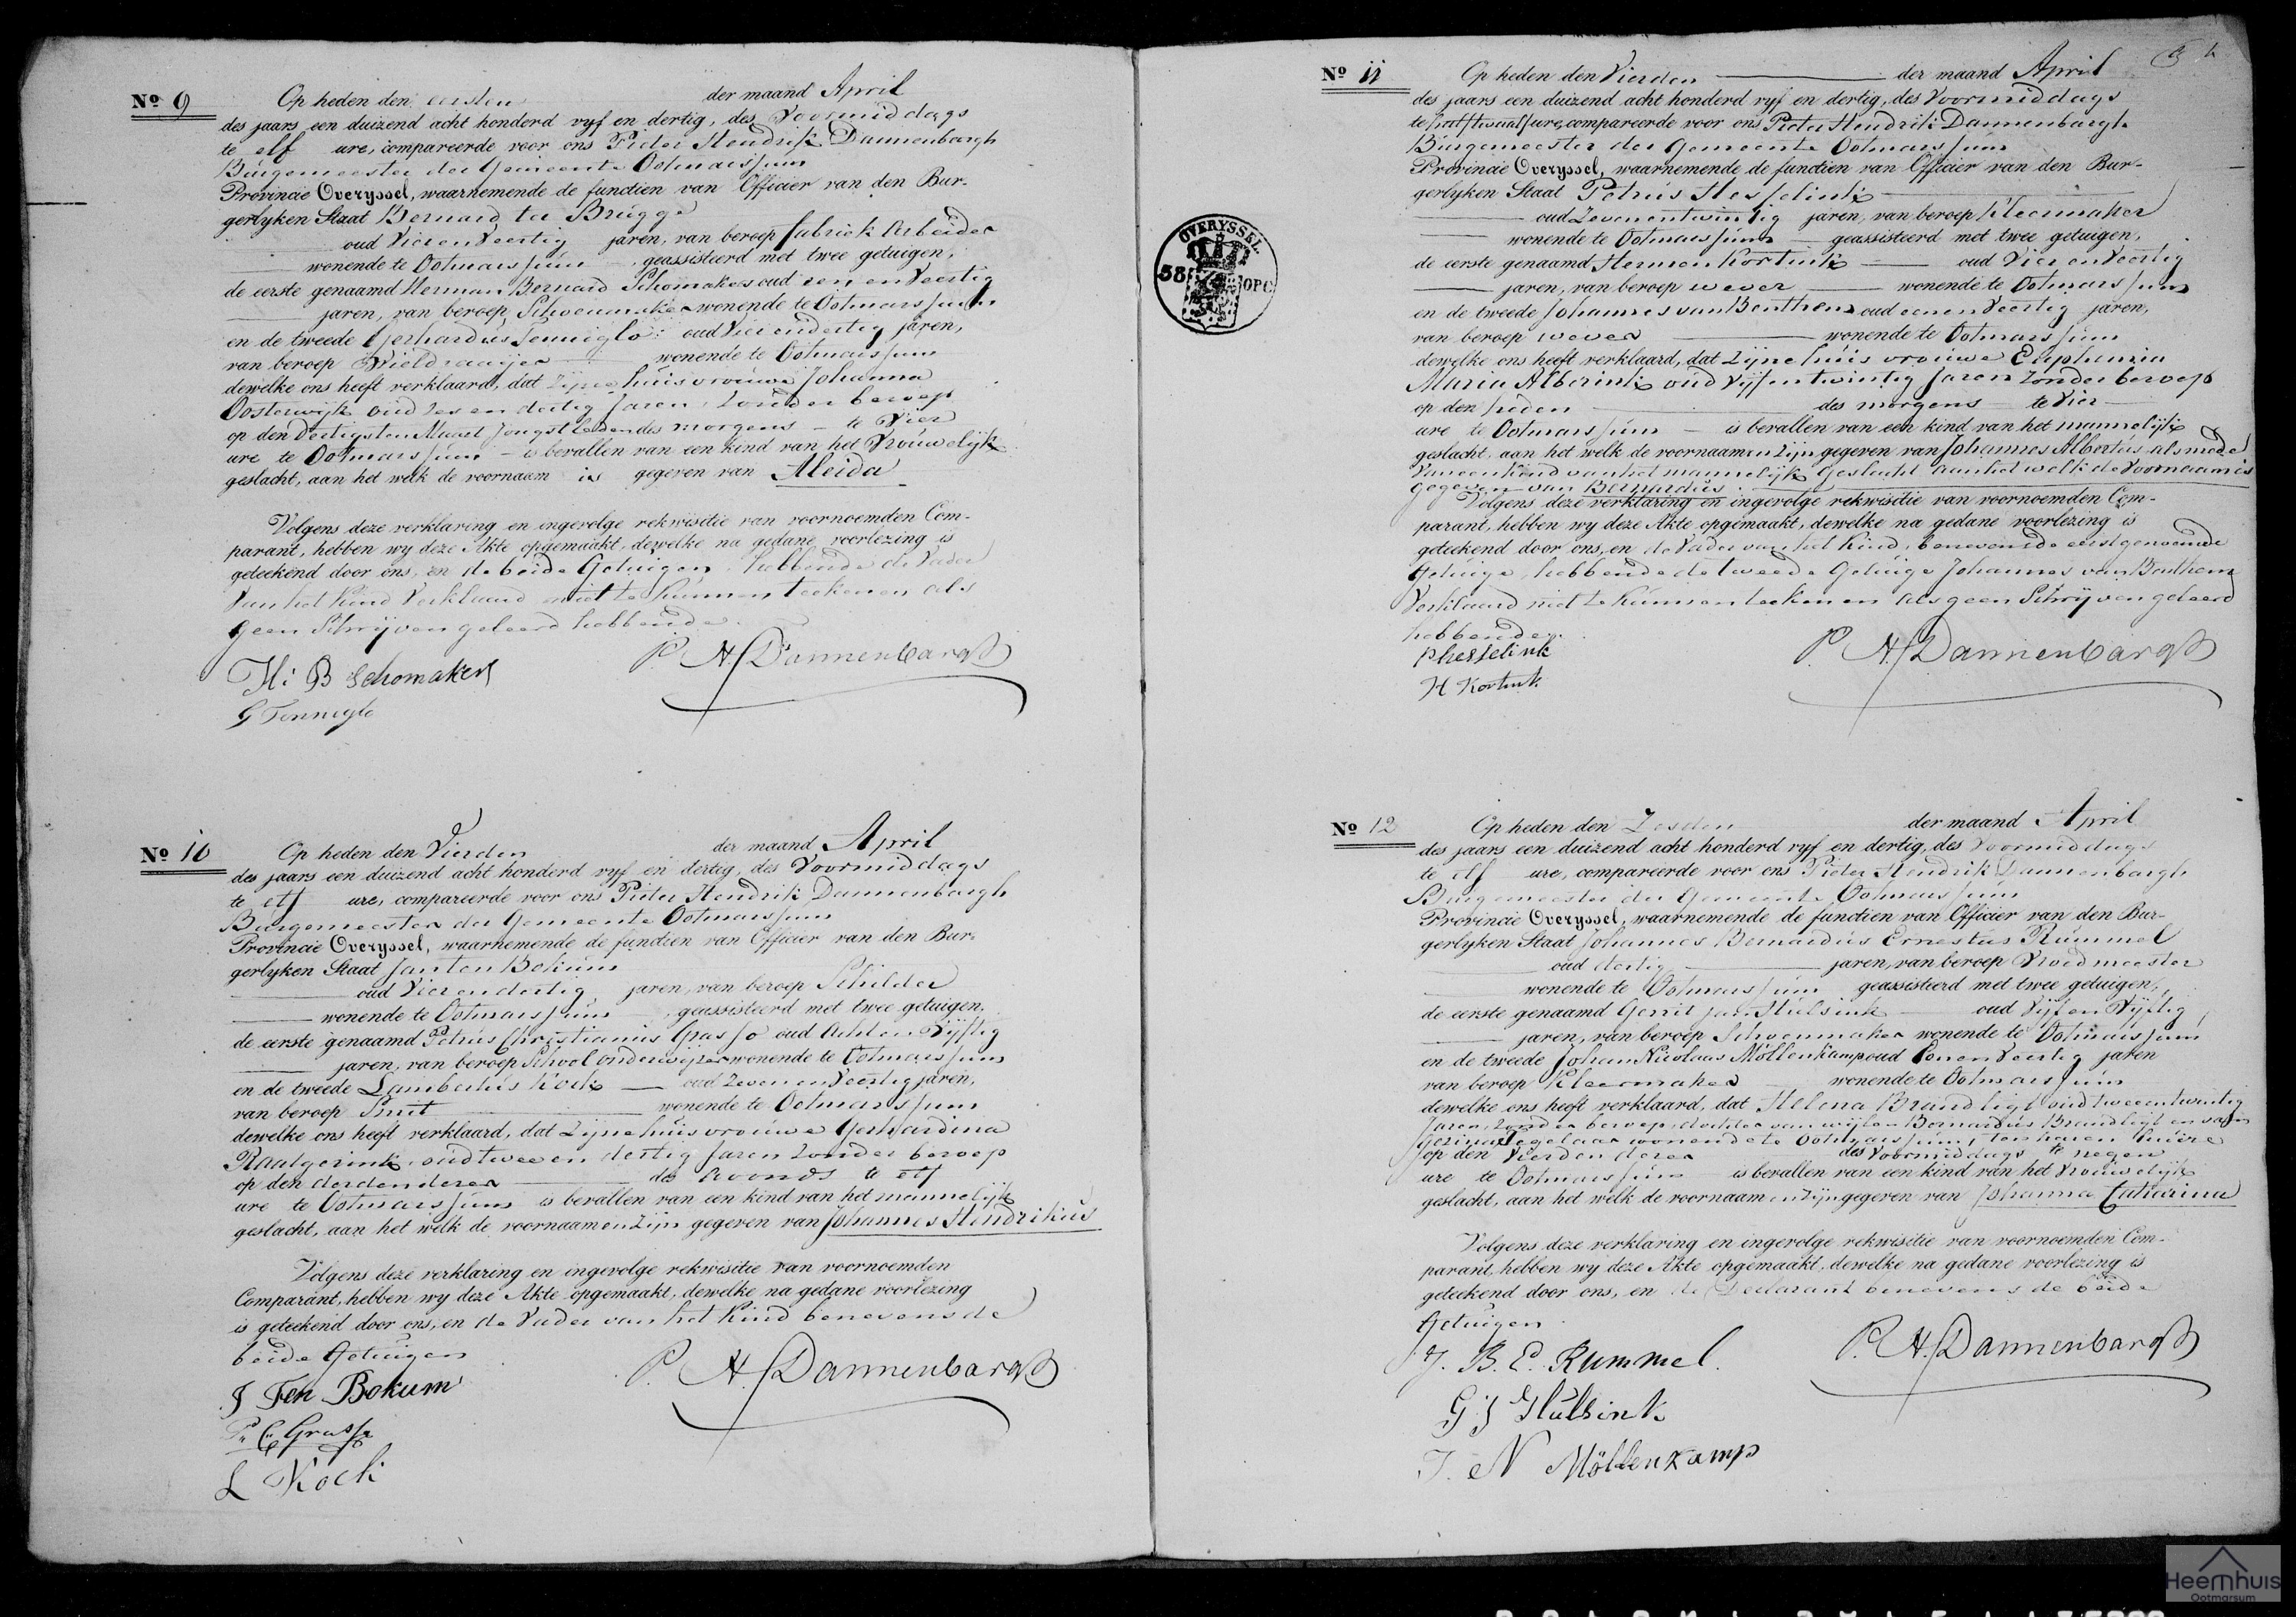 Nº 9 Op heden den eersten der maand April
des jaars een duizend acht honderd vyf en dertig, des Voormiddags
te elf ure, compareerde voor ons Pieter Hendrik Dannenbargh
Burgemeester der Gemeente Ootmarssum
Provincie Overyssel, waarnemende de functien van Officier van den Bur-
gerlyken Staat Bernard ter Brugge
oud Vier en Veertig jaren, van beroep fabriek Arbeider
wonende te Ootmarssum geassisteerd met twee getuigen,
de eerste genaamd Herman Bernard Schomakers oud een en Veertig
jaren, van beroep Schoenmaker wonende te Ootmarssum
en de tweede Gerhardus Tenniglo oud Vier en dertig jaren,
van beroep Wieldraaijer wonende te Ootmarssum
dewelke ons heeft verklaard, dat Zijne huisvrouwe Johanna
Oosterwijk oud Zes en dertig Jaren Zonder beroep
op den dertigsten Maart Jongstleden des morgens te Vier
ure te Ootmarssum is bevallen van een kind van het Vrouwelijk
geslacht, aan het welk de voornaam is gegeven van Aleida
Volgens deze verklaring en ingevolge rekwisitie van voornoemden Com-
parant, hebben wy deze Akte opgemaakt, dewelke na gedane voorlezing is
geteekend door ons, en de beide Getuigen hebbende de Vader
Van het Kind Verklaard niet te kunnen teekenen als
geen Schrijven geleerd hebbende
P. H. Dannenbargh
H: B Schomakers
G Tenniglo
Nº 10 Op heden den Vierden der maand April
des jaars een duizend acht honderd vyf en dertig, des Voormiddags
te elf ure, compareerde voor ons Pieter Hendrik Dannenbargh
Burgemeester der Gemeente Ootmarssum
Provincie Overyssel, waarnemende de functien van Officier van den Bur-
gerlyken Staat Jan ten Bokum
oud Vier en dertig jaren, van beroep Schilder
wonende te Ootmarssum geassisteerd met twee getuigen,
de eerste genaamd Petrus Christianus Grasso oud Acht en Vijftig
jaren, van beroep Schoolonderwijzer wonende te Ootmarssum
en de tweede Lambertus Kock oud Zeven en Veertig jaren,
van beroep Smit wonende te Ootmarssum
dewelke ons heeft verklaard, dat Zijne huisvrouwe Gerhardina
Raalgerink oud twee en dertig Jaren Zonder beroep
op den derden dezer des Avonds te elf
ure te Ootmarssum is bevallen van een kind van het mannelijk
geslacht, aan het welk de voornaamen Zijn gegeven van Johannes Hendrikus
Volgens deze verklaring en ingevolge rekwisitie van voornoemden
Comparant, hebben wy deze Akte opgemaakt, dewelke na gedane voorlezing
is geteekend door ons, en de Vader van het Kind benevens de
beide Getuigen
P. H. Dannenbargh
J Ten Bokum
P. C. Grasso
L Kock
Nº 11 Op heden den Vierden der maand April
des jaars een duizend acht honderd vyf en dertig, des Voormiddags
te half twaalf ure, compareerde voor ons Pieter Hendrik Dannenbargh
Burgemeester der Gemeente Ootmarssum
Provincie Overyssel, waarnemende de functien van Officier van den Bur-
gerlyken Staat Petrus Hesselink
oud Zeven en twintig jaren, van beroep Kleermaker
wonende te Ootmarssum geassisteerd met twee getuigen,
de eerste genaamd Hermen Kortink oud Vier en Veertig
jaren, van beroep wever wonende te Ootmarssum
en de tweede Johannes van Benthem oud een en Veertig jaren,
van beroep wever wonende te Ootmarssum
dewelke ons heeft verklaard, dat Zijne huisvrouwe Euphemia
Maria Alberink oud Vijf en twintig Jaren Zonder beroep
op den heden des morgens te Vier
ure te Ootmarssum is bevallen van een kind van het mannelijk
geslacht, aan het welk de voornaamen Zijn gegeven van Johannes Albertus alsmede
Van een Kind van het mannelijk Geslacht aan het welk de Voornaam is
Gegeven van Bernardus
Volgens deze verklaring en ingevolge rekwisitie van voornoemden Com-
parant, hebben wy deze Akte opgemaakt, dewelke na gedane voorlezing is
geteekend door ons, en de Vader van het Kind, benevens de eerstgenoemde
Getuige, hebbende de tweede Getuige Johannes van Benthem
Verklaard niet te kunnen teekenen als geen Schrijven geleerd
hebbende.
P. H. Dannenbargh
P hesselink
H Kortink
OVERYSSEL.
58 OPC
Nº 12 Op heden den Zesden der maand April
des jaars een duizend acht honderd vyf en dertig, des Voormiddags
te elf ure, compareerde voor ons Pieter Hendrik Dannenbargh
Burgemeester der Gemeente Ootmarssum
Provincie Overyssel, waarnemende de functien van Officier van den Bur-
gerlyken Staat Johannes Bernardus Ernestus Rummel
oud dertig jaren, van beroep Vroedmeester
wonende te Ootmarssum geassisteerd met twee getuigen,
de eerste genaamd Gerrit Jan Hulsink oud Vijf en Vijftig
jaren, van beroep Schoenmaker wonende te Ootmarssum
en de tweede Johan Nicolaus Möllenkamp oud Een en Veertig jaren
van beroep Kleermaker wonende te Ootmarssum
dewelke ons heeft verklaard, dat Helena Brandligt oud twee en twintig
Jaren, Zonder beroep, dochter van wijlen Bernardus Brandligt en van
Gezina Tegelaar wonende te Ootmarssum, ten haren huize
op den Vierden dezer des Voormiddags te negen
ure te Ootmarssum is bevallen van een kind van het Vrouwelijk
geslacht, aan het welk de voornaamen Zijn gegeven van Johanna Catharina
Volgens deze verklaring en ingevolge rekwisitie van voornoemden Com-
parant, hebben wy deze Akte opgemaakt, dewelke na gedane voorlezing is
geteekend door ons, en de Declarant benevens de beide
Getuigen
P. H. Dannenbargh
J. B. E. Rummel.
G J Hulsink
J. N Möllenkamp
Heemhuis
Ootmarsum